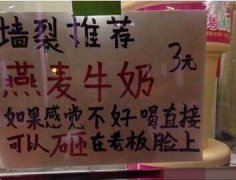 墙裂推荐
3元
燕麦牛奶
如果感觉不好喝直接
可以砸在老板脸上